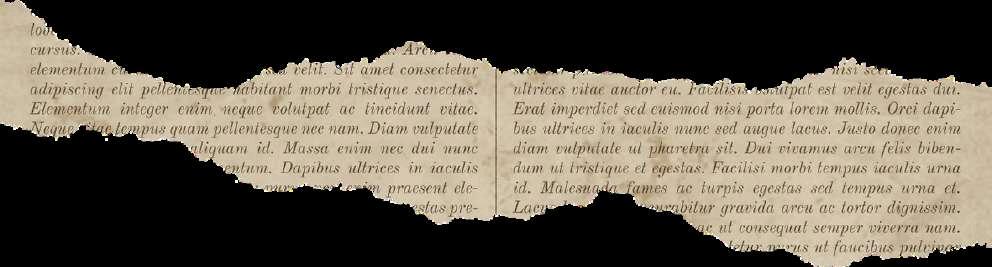 cursus.
elementum velit. Sit amet consectetur
adipiscing elit pellentesque habitant morbi tristique senectus.
Elementum integer enim neque volutpat ac tincidunt vitae.
Neque vitae tempus quam pellentesque nec nam. Diam vulputate
aliquam id. Massa enim nec dui nunc
Dapibus ultrices in iaculis
enim praesent ele-
pre-
nisi
ultrices vitae auctor eu. Facilisis volutpat est velit egestas dui.
Erat imperdiet sed euismod nisi porta lorem mollis. Orci dapi-
bus ultrices in iaculis nunc sed augue lacus. Justo donec enim
diam vulputate ut pharetra sit. Dui vivamus arcu felis biben-
dum ut tristique et egestas. Facilisi morbi tempus iaculis urna
id. Malesuada fames ac turpis egestas sed tempus urna et.
curabitur gravida arcu ac tortor dignissim.
ac ut consequat semper viverra nam.
purus ut faucibus pulvinar